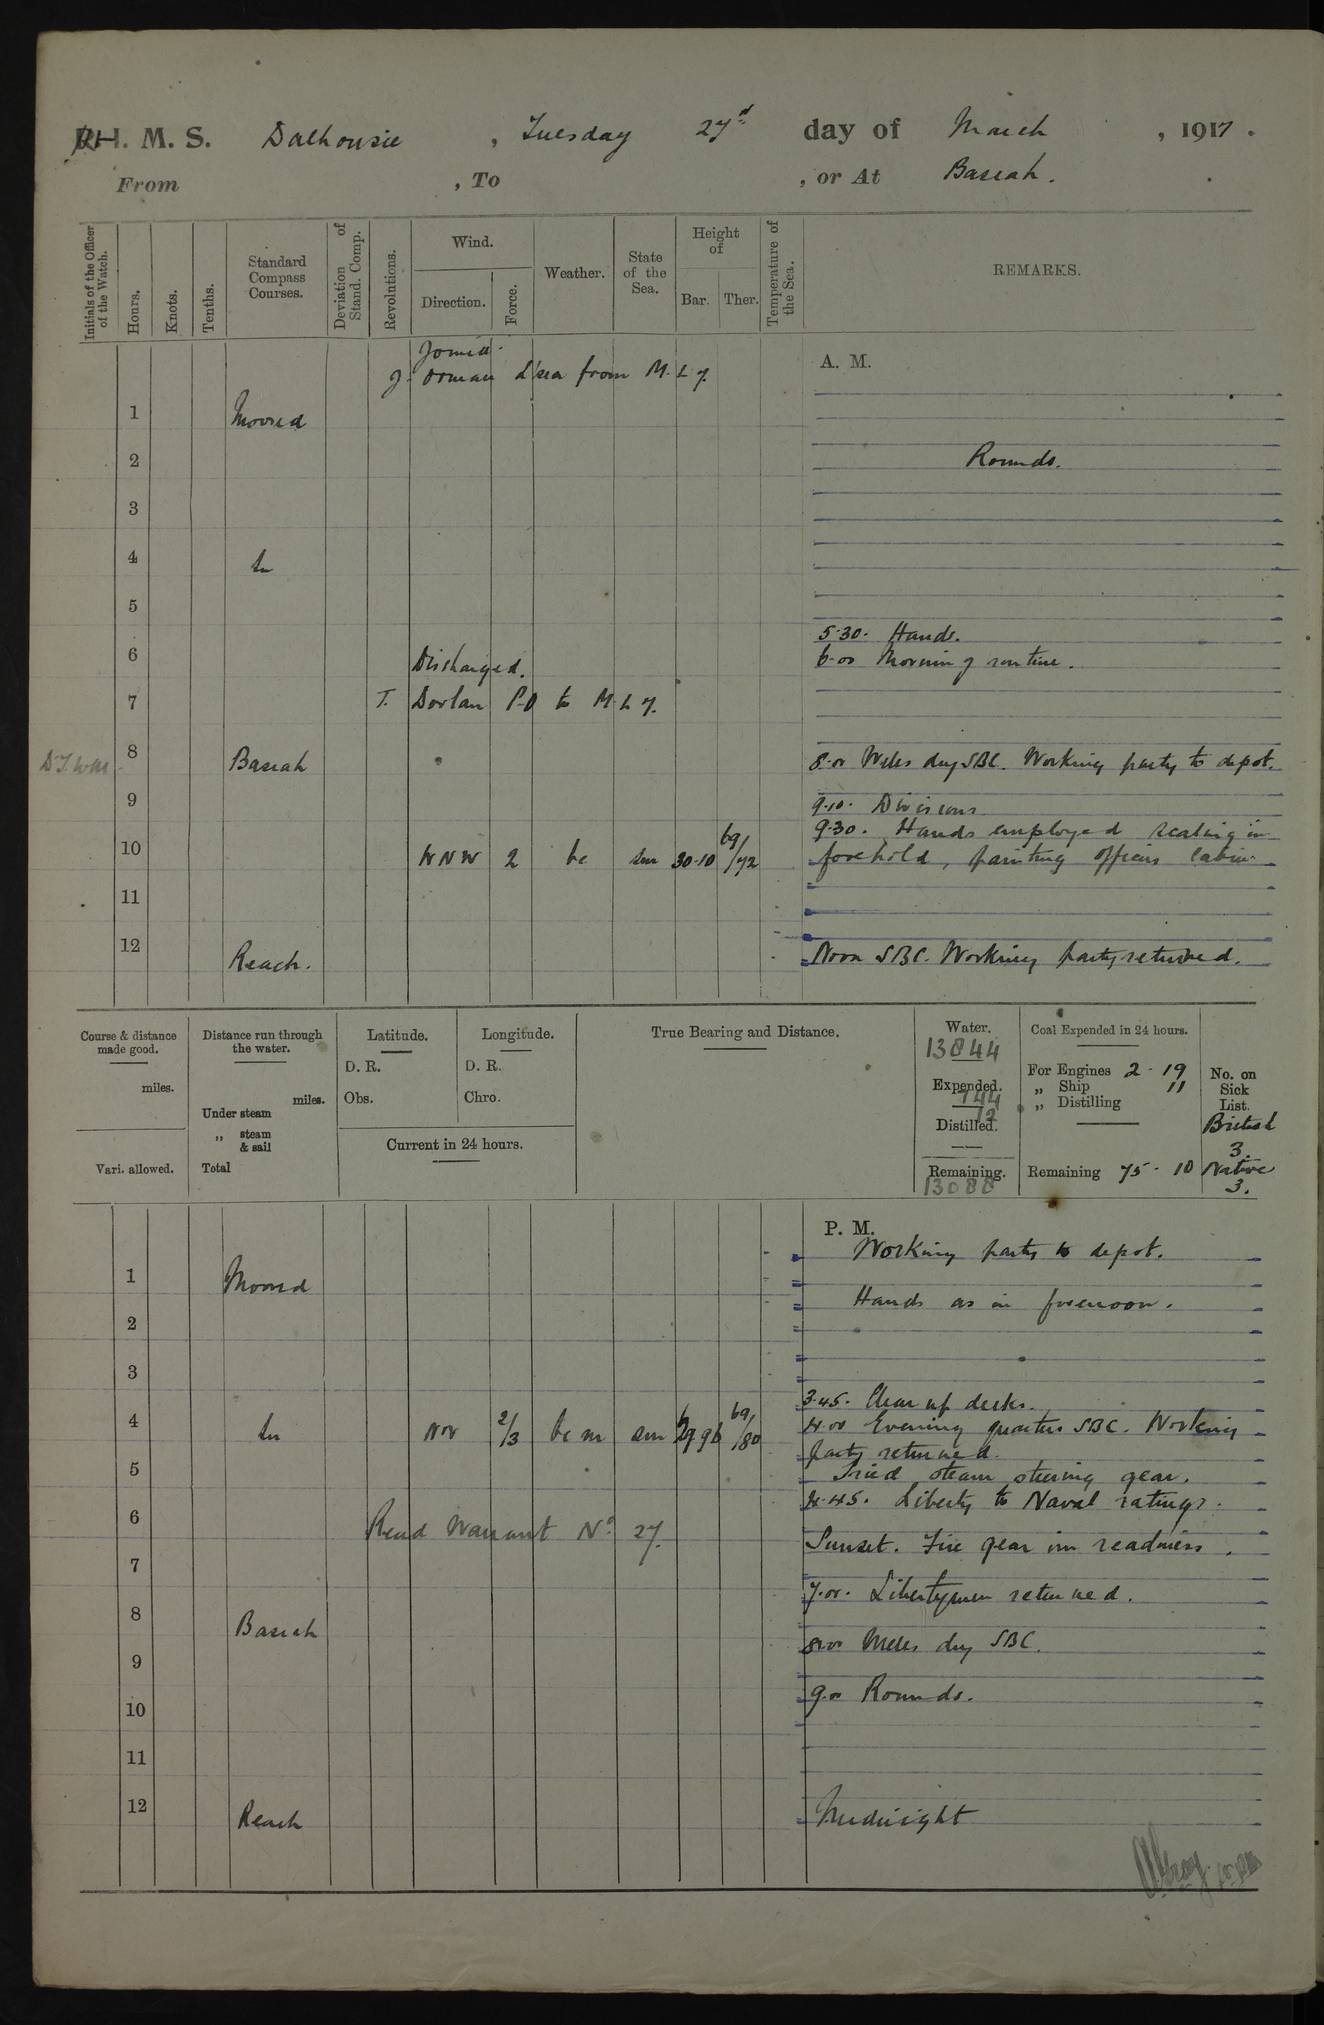 H. M. S. Dalhousie , Tuesday 27d day of March , 1917 .
From , To , or At Basrah .
Initials of the Officer of the Watch.
Hours.
Knots.
Tenths.
Standard Compass Courses.
Deviation of Stand. Comp.
Revolutions.
Wind.
Direction.
Force.
Weather.
State of the Sea.
Height of
Bar.
Ther.
Temperature of the Sea.
REMARKS.
A. M.
Joined.
J. Orman L'sea from M. L 7.
1 Moored
2 Rounds.
3
4 In
5
5.30. Hands.
6 6.00 Morning routine.
Discharged.
7 T. Dorlan P.O to M. L 7.
8 Basrah 8.00 Weles dry SBC. Working party to depot.
9 9.10. Divisions
9.30. Hands employed scaling in
10 WNW 2 bc sm 30.10 69/72 forehold, painting officers cabin.
11
12 Reach. Noon SBC. Working party returned.
Course & distance made good.
miles.
Vari. allowed.
Distance run through the water.
miles.
Under steam
„ steam & sail
Total
Latitude.
D. R.
Obs.
Longitude.
D. R.
Chro.
Current in 24 hours.
True Bearing and Distance.
Water.
13844
Expended.
744
12
Distilled.
Remaining.
13088
Coal Expended in 24 hours.
For Engines 2 - 19
„ Ship 11
„ Distilling
Remaining 75 - 10
No. on Sick List.
British
3.
Native
3.
P. M.
Working party to depot.
1 Moored
Hands as in forenoon.
2
3
3.45. Clear up decks.
4 In NW 2/3 bc m sm 29.96 69/80 4.00 Evening quarters SBC. Working
party returned.
5 Tried steam steering gear.
4.45. Liberty to Naval ratings.
6 Read Warrant No. 27.
Sunset. Fire gear in readiness.
7
7.00. Libertymen returned.
8 Basrah
8.00 Weles dry SBC.
9
9.00 Rounds.
10
11
12 Reach Midnight